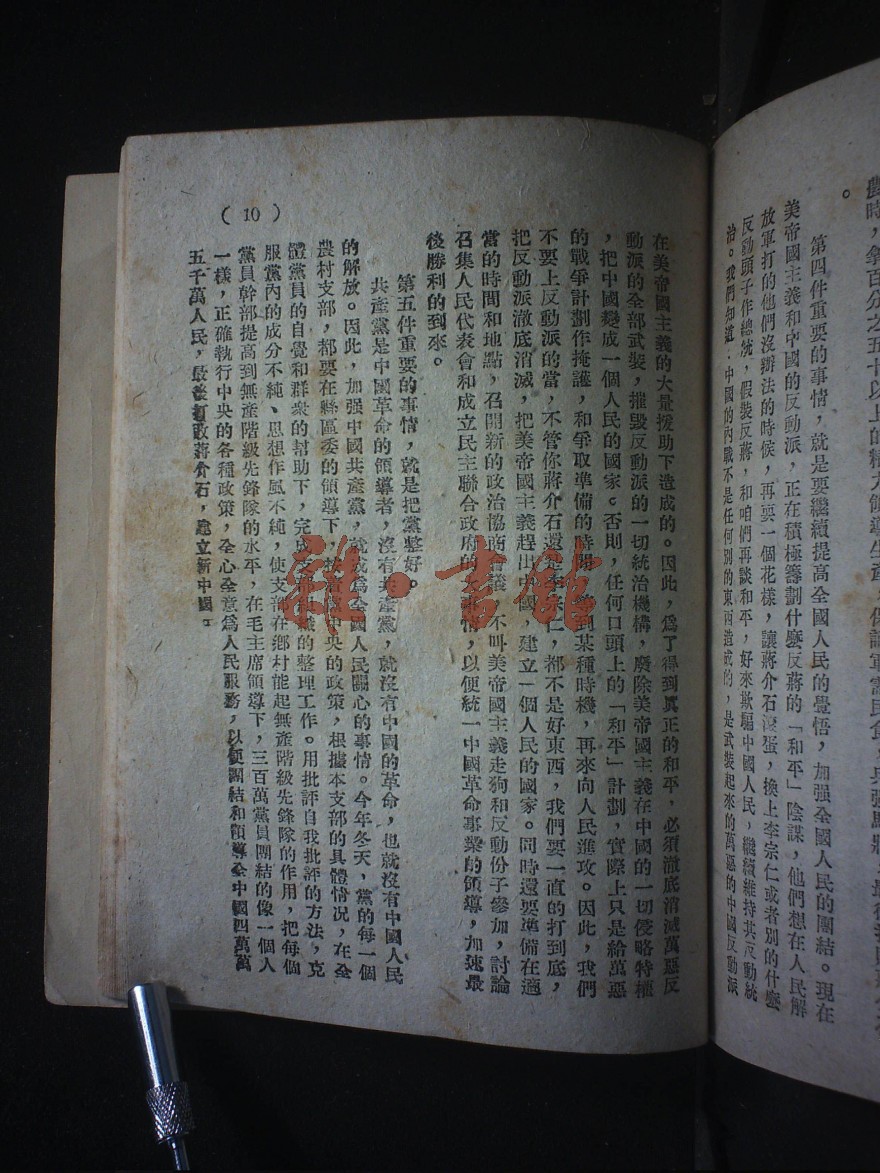 第四件重要的事情，就是要繼續提高全國人民的覺悟，加强全國人民的團結。現在
美帝國主義和中國的反動派，正在積極籌劃什麽反蔣的「和平」陰謀，他們想在人民解
放軍打的他們沒辦法的時候，再耍一個花樣，讓蔣介石滾蛋，換上李宗仁或者別的什麽
反動頭子作總統，假裝反蔣，和咱們再談和平，好來欺騙中國人民，繼續維持其反動統
治。我們知道：中國的內戰不是任何別的東西造成的，是武裝起來的萬惡的中國反動派
在美帝國主義的大量援助下造成的。因此，爲了得到眞正的和平，必須澈底消滅萬惡反
動派的全部武裝，摧毀反動派的一切統治機構，廢除美帝國主義在中國的一切侵略特權
，把中國變成一個人民的國家。否則，任何口頭上的「和平」計劃，實際上只是給萬惡
的戰爭計劃作掩護，和爭取準備的時間，等到某種時機，再來向人民進攻。因此，我們
不要上反動派的當，不管你蔣介石還是李宗仁，都不是好東西，我們要一直的打到底，
把反動派澈底消滅，把美帝國主義趕出中國，建立一個人民的國家。同時還要準備在適
當的時間和地點，召開新的政治協商會議，不叫美帝國主義走狗和反動份子參加，討論
召集人民代表會和成立民主聯合政府的大事情，以便統一中國革命事業的領導，加速最
後勝利的到來。
第五件重要的事情，就是把黨整好。
共產黨是中國革命的領導者，沒有共產黨，就沒有中國的革命，也就沒有中國人民
的解放。因此，加强中國共產黨，就成爲全國人民關心的事情。今年冬天，黨的每一個
農村支部，都要在縣區委的領導下，按着黨中央的政策，根據本支部的具體情況，在全
體黨員的自覺和群衆的幫助下，完成支部組織的整理工作。用批評自我批評的方法，克
服黨內的成分不純、思想作風不純，使支部在鄕村能起無產階級先鋒隊的作用，把每個
黨員幹部提高到無產階級先鋒隊的水平，在毛主席領導下，三百萬黨員團結的像一個人
一樣，正確執行中央的各種政策，全心全意爲人民服務，以便團結和領導全中國四萬萬
五千萬人民，最後打敗蔣介石，建立新中國。
（10）
雜·書館